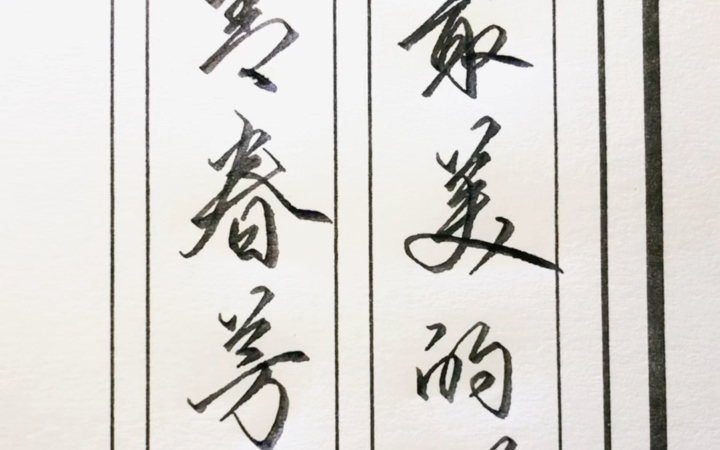 最美的
春芳